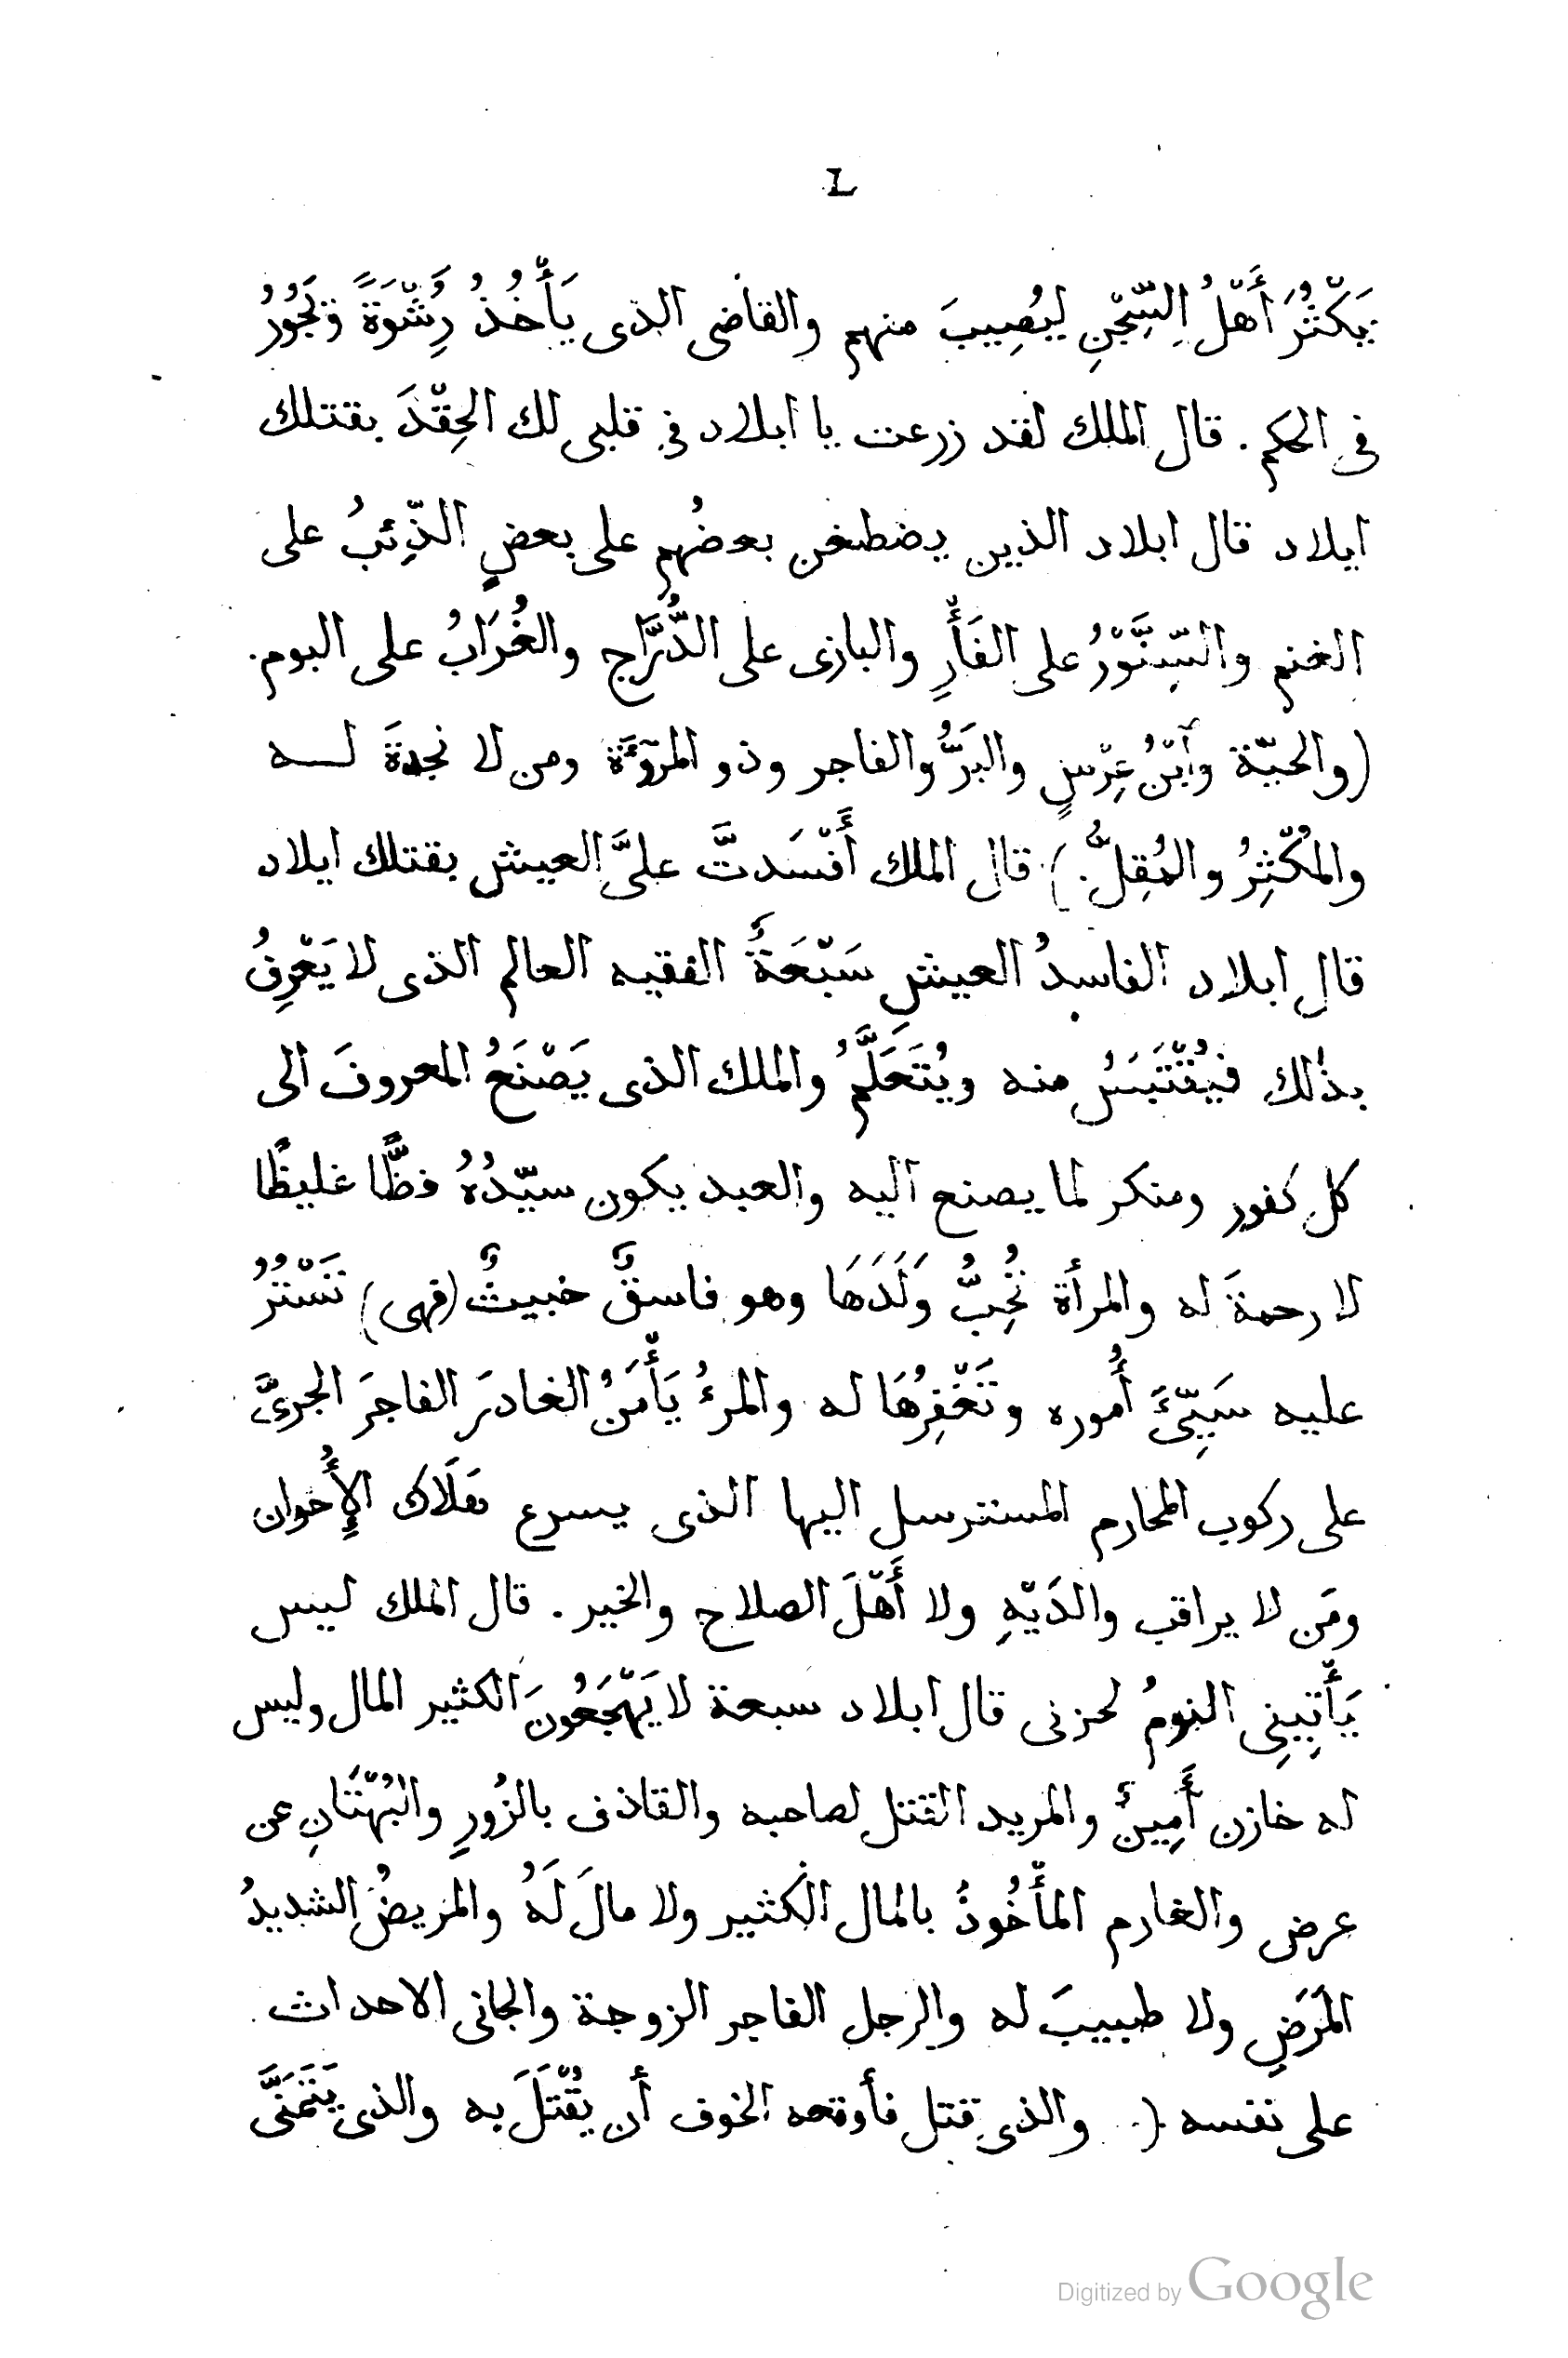 L
يَكْثُرَ أَهْلُ السِّجْنِ ليُصِيبَ منهم والقاضى الذى يَأْخُذُ رِشْوَةً وَيَجُورُ
فى الحكم . قال الملك لقد زرعت يا ابلاد فى قلبى لك الحِقْدَ بقتلك
ايلاد قال ابلاد الذين يضطغن بعضُهم على بعضٍ الذِّئبُ على
الغنم والسِّنَّوْرُ على الفَأْرِ والبازى على الدُّرَّاج والغُرَابُ على البوم .
(والحيّة وٱبْنُ عِرْسٍ والبَرُّ والفاجر وذو المروٓءَة ومن لا نجدةَ لـــه
والمُكْثِرُ والمُقِلُّ .) قال الملك أَفْسَدتَّ علىَّ العيش بقتلك ايلاد
قال ابلاد الفاسدُ العيشِ سَبْعَةٌ الفقيه العالم الذى لا يَعْرِفُ
بذلك فيُقْتَبَسُ منه ويُتَعَلَّمُ والملك الذى يَصْنَعُ المعروفَ الى
كل كفور ومنكر لما يصنع اليه والعبد يكون سيّدُهُ فظًّا غليظًا
لا رحمةَ له والمرأة تُحِبُّ وَلَدَهَا وهو فاسقٌ خبيثٌ (فهى) تَسْتُرُ
عليه سَيِّىَٔ أُموره وتَغْفِرُهَا له والمرءُ يَأْمَنُ الغادرَ الفاجرَ الجرىَّ
على ركوب المحارم المسترسل اليها الذى يسرع هَلَاك الإُخوان
ومَن لا يراقب والدَيْهِ ولا أَهْلَ الصلاح والخير . قال الملك ليس
يَأْتِينِى النومُ لحزنى قال ابلاد سبعة لا يَهْجَعُونَ الكثير المال وليس
له خازن أَمِينٌ والمريد القتل لصاحبه والقاذف بالزُورِ والبُهْتَانِ عن
عرض والغارم المأْخُوذُ بالمال الكثير ولا مالَ لَهُ والمَريضُ الشديدُ
المَرَضِ ولا طبيبَ له والرجل الفاجر الزوجة والجانى الاحداث .
على نفسه (.. والذى قتل فأوقعه الخوف أن يُقْتَلَ به والذى يَتَمَنَّى
Digitized by Google